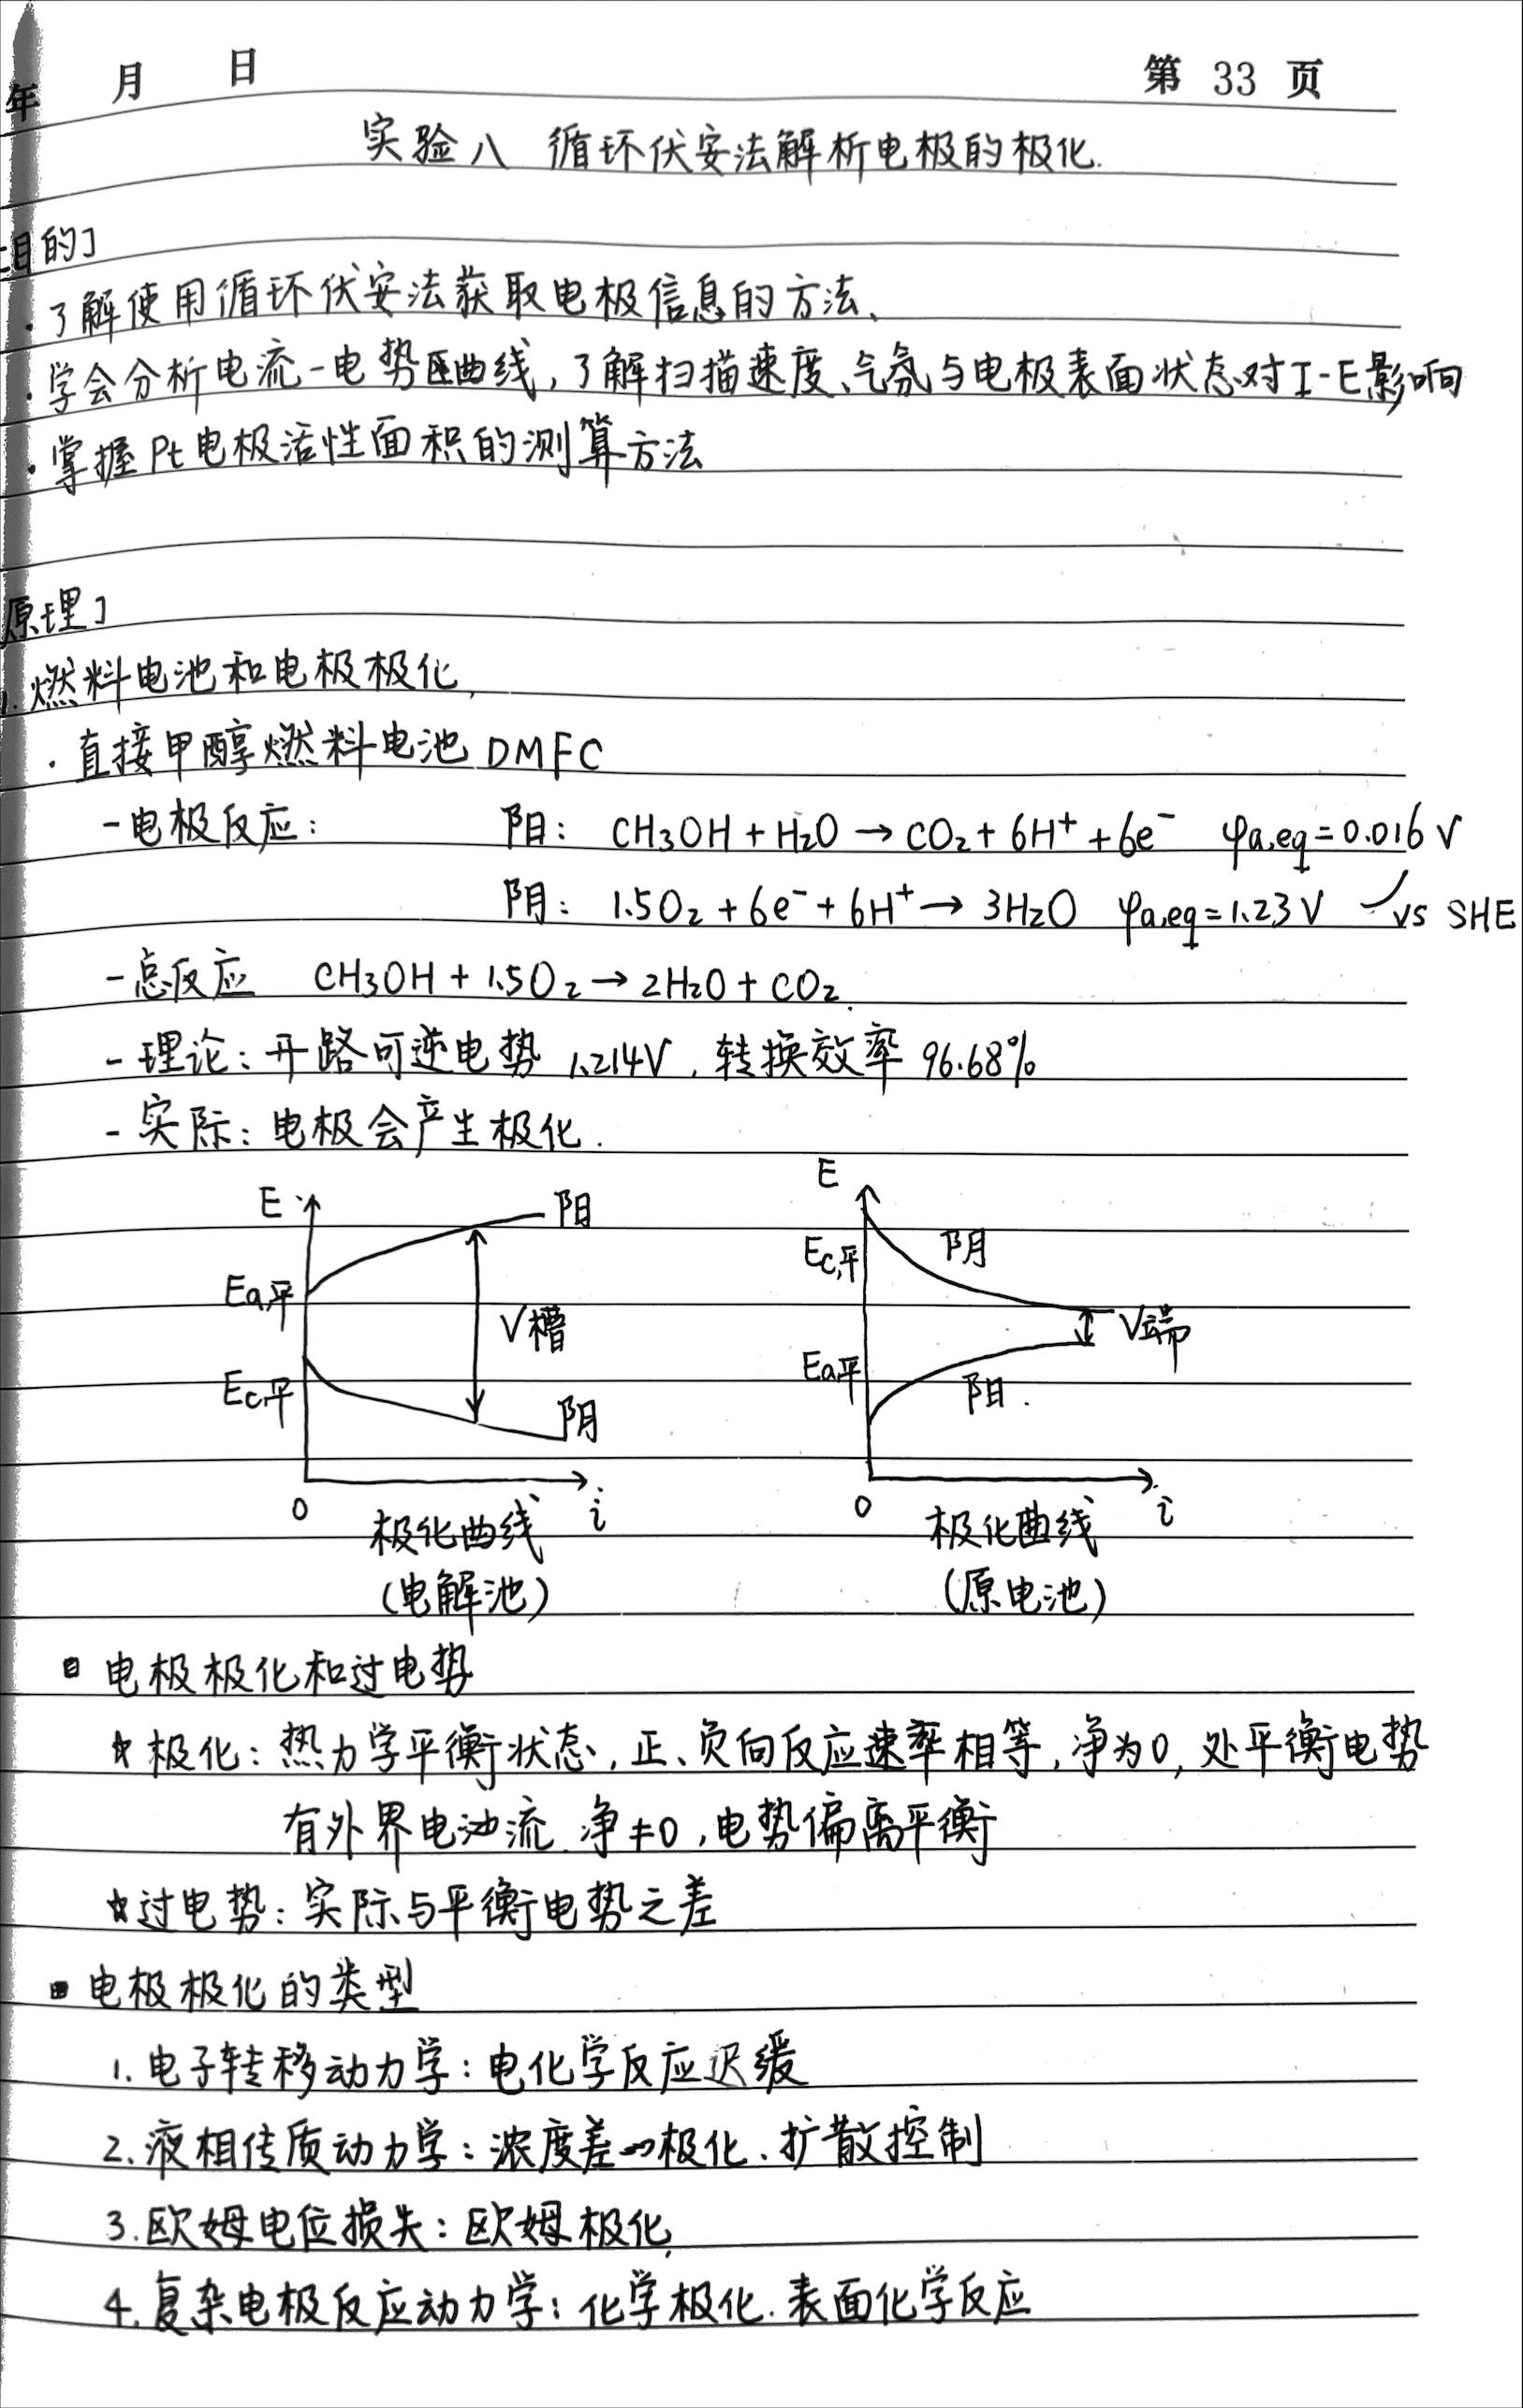 年 月 日 第 33 页
实验八 循环伏安法解析电极的极化.
目的]
· 了解使用循环伏安法获取电极信息的方法、
· 学会分析电流-电势曲线,了解扫描速度、气氛与电极表面状态对I-E影响
· 掌握Pt电极活性面积的测算方法
原理]
1. 燃料电池和电极极化,
· 直接甲醇燃料电池 DMFC
- 电极反应: 阳: CH₃OH + H₂O → CO₂ + 6H⁺ + 6e⁻ φa,eq = 0.016 V
阴: 1.5O₂ + 6e⁻ + 6H⁺ → 3H₂O φa,eq = 1.23 V vs SHE
- 总反应 CH₃OH + 1.5O₂ → 2H₂O + CO₂.
- 理论: 开路可逆电势 1.214V, 转换效率 96.68%
- 实际: 电极会产生极化.
E 阳 Ea,平 V槽 Ec,平 阴 0 i
极化曲线
(电解池)
E Ec,平 阴 V端 Ea平 阳. 0 i
极化曲线
(原电池)
电极极化和过电势
☆ 极化: 热力学平衡状态, 正、负向反应速率相等, 净为0, 处平衡电势
有外界电流. 净≠0, 电势偏离平衡
☆ 过电势: 实际与平衡电势之差
电极极化的类型
1. 电子转移动力学: 电化学反应迟缓
2. 液相传质动力学: 浓度差极化、扩散控制
3. 欧姆电位损失: 欧姆极化,
4. 复杂电极反应动力学: 化学极化. 表面化学反应